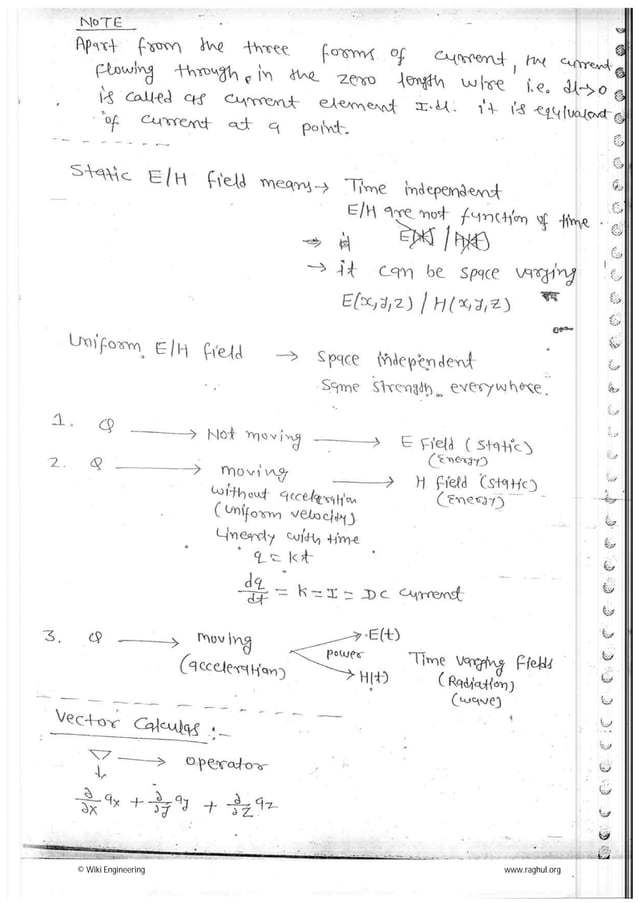 NOTE
Apart from the three forms of current, the current
flowing through, in the zero length wire i.e. dl→0
is called as current element I.dl. it is equivalent
of current at a point.
Static E/H field means → Time independent
E/H are not function of time.
→ it can be space varying
E(x,y,z) / H(x,y,z)
Uniform E/H field → Space independent
Same strength everywhere.
1. Q → Not moving → E Field (static)
(Energy)
2. Q → moving → H field (static)
without acceleration (Energy)
(uniform velocity)
Linearly with time
q = kt
dq/dt = k = I = DC current
3. Q → moving → E(t)
power Time varying fields
(acceleration) → H(t) (Radiation)
(wave)
Vector Calculas :-
▽ → operator
↓
∂/∂x ax + ∂/∂y ay + ∂/∂z az
© Wiki Engineering www.raghul.org